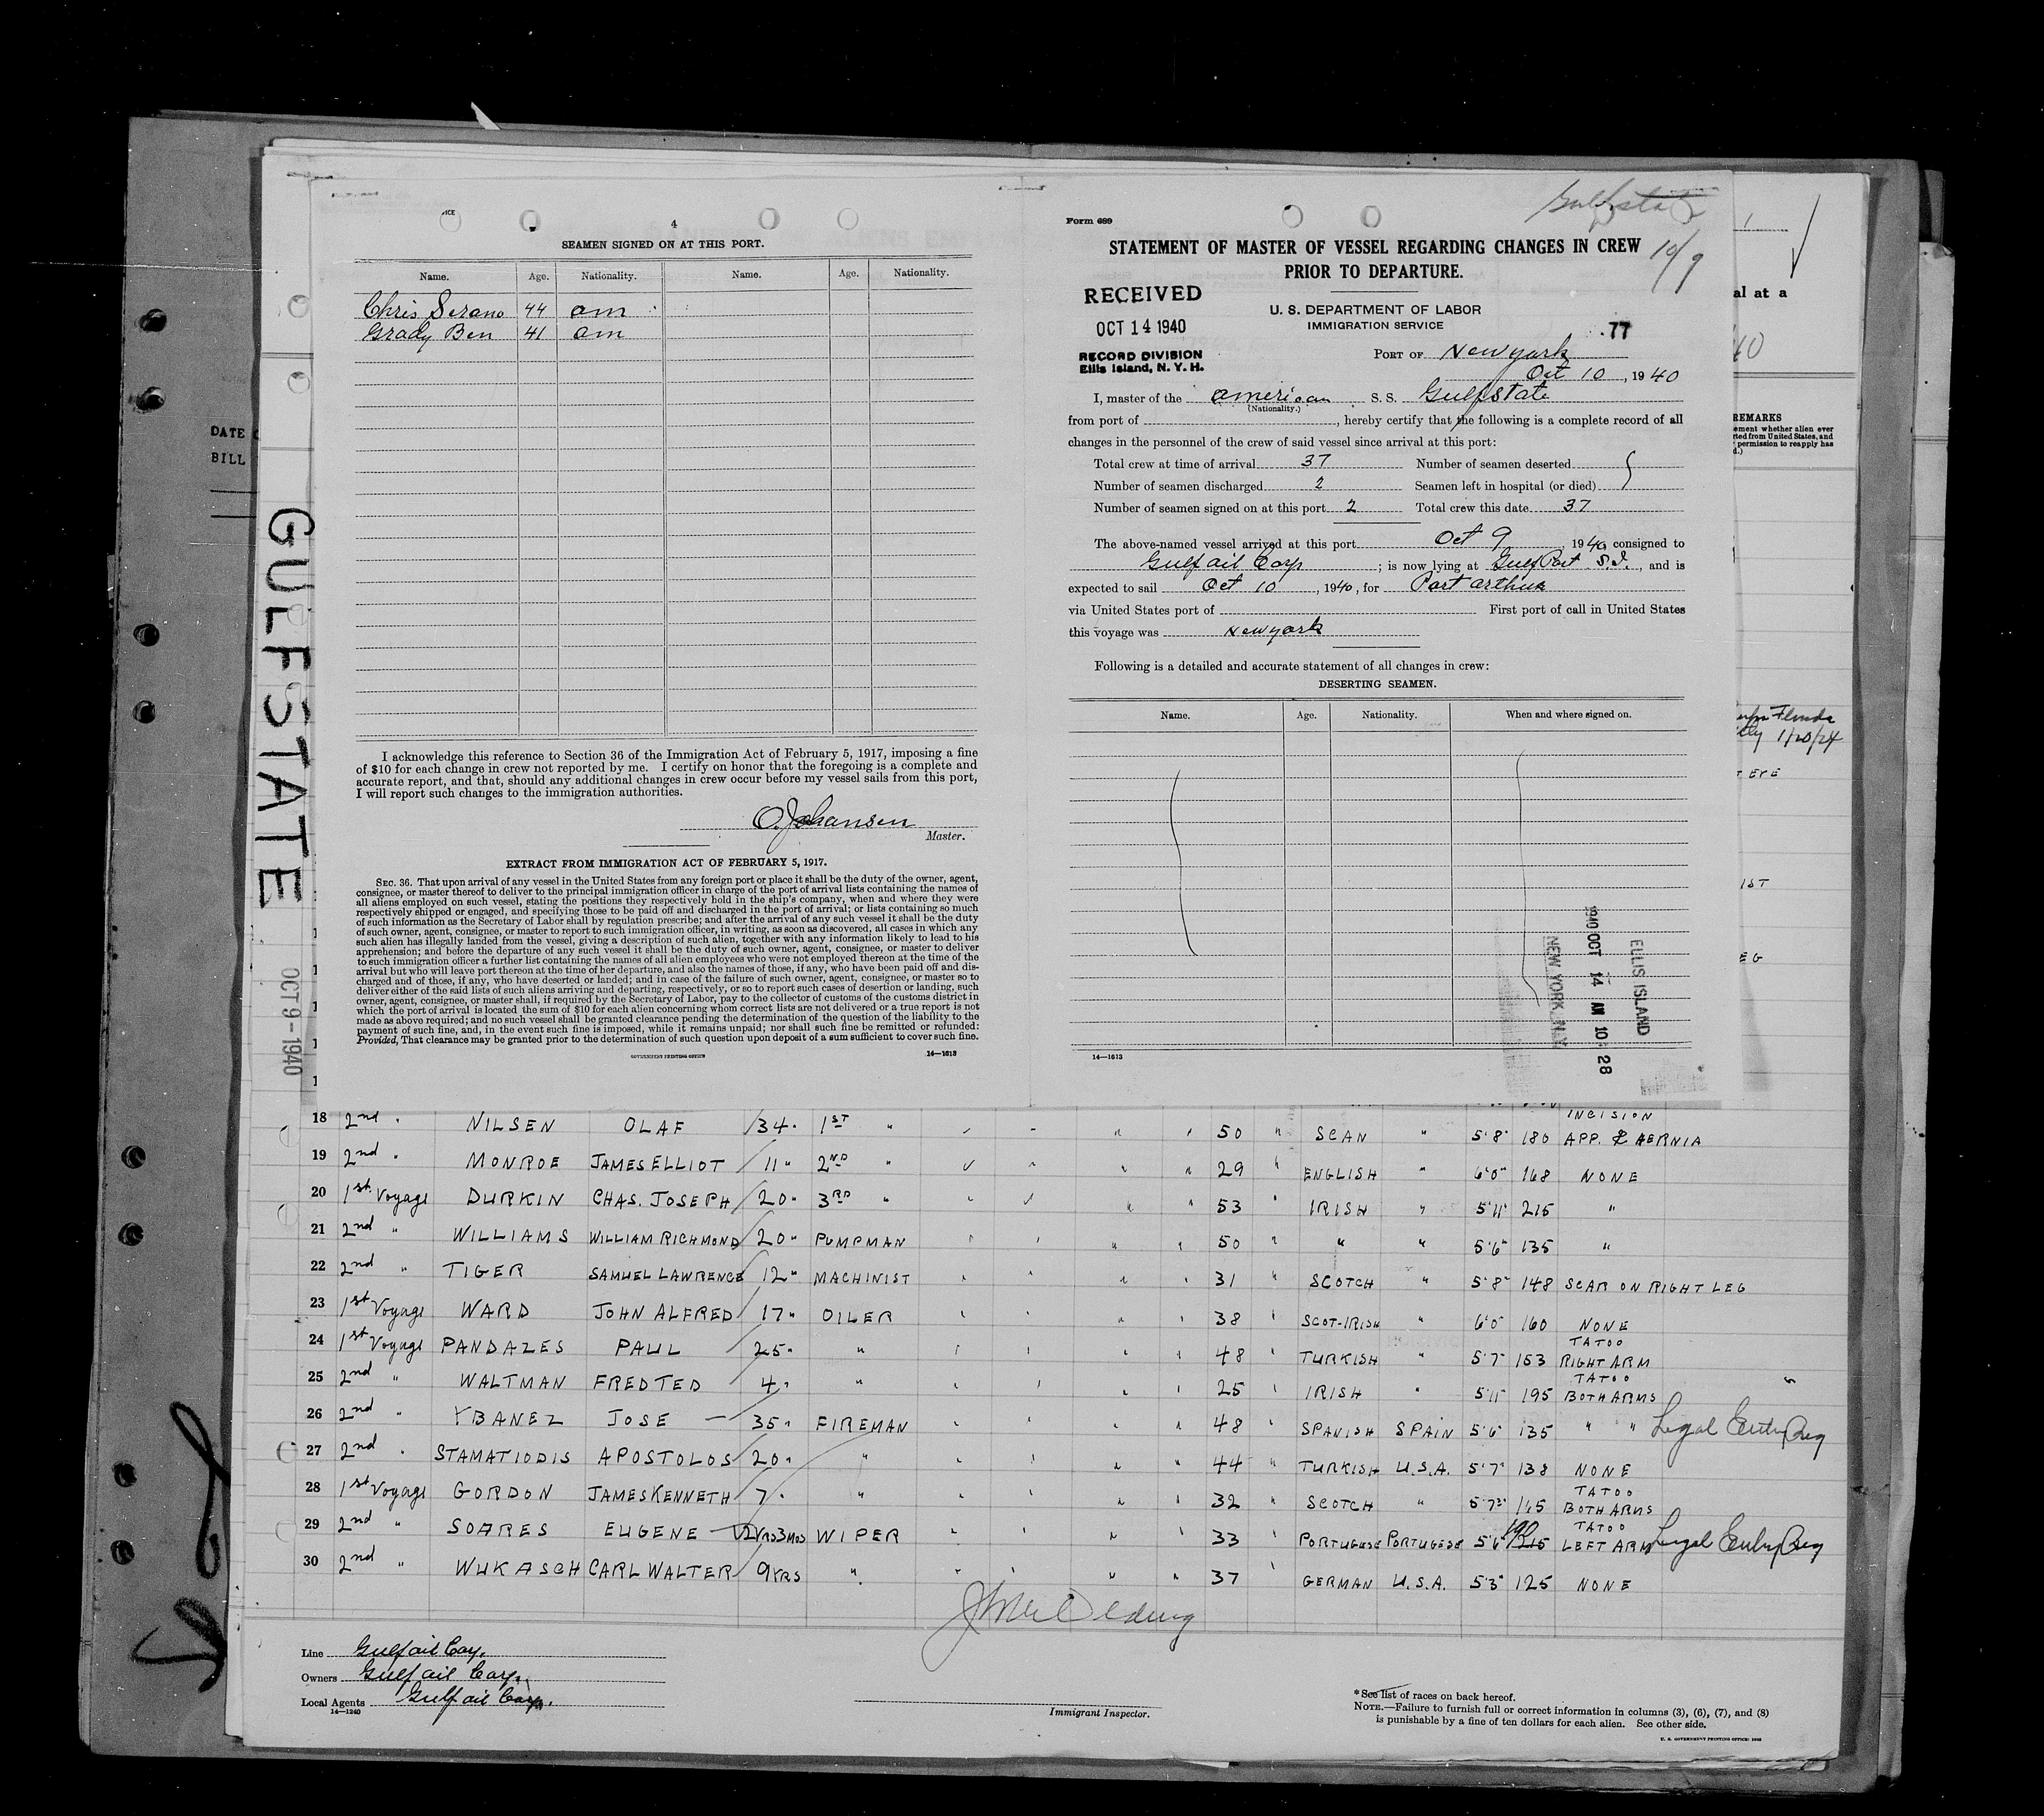 4
SEAMEN SIGNED ON AT THIS PORT.
Name. Age. Nationality. Name. Age. Nationality.
Chris Serano 44 am
Grady Ben 41 am
I acknowledge this reference to Section 36 of the Immigration Act of February 5, 1917, imposing a fine
of $10 for each change in crew not reported by me. I certify on honor that the foregoing is a complete and
accurate report, and that, should any additional changes in crew occur before my vessel sails from this port,
I will report such changes to the immigration authorities.
O. Johansen
Master.
EXTRACT FROM IMMIGRATION ACT OF FEBRUARY 5, 1917.
SEC. 36. That upon arrival of any vessel in the United States from any foreign port or place it shall be the duty of the owner, agent,
consignee, or master thereof to deliver to the principal immigration officer in charge of the port of arrival lists containing the names of
all aliens employed on such vessel, stating the positions they respectively hold in the ship's company, when and where they were
respectively shipped or engaged, and specifying those to be paid off and discharged in the port of arrival; or lists containing so much
of such information as the Secretary of Labor shall by regulation prescribe; and after the arrival of any such vessel it shall be the duty
of such owner, agent, consignee, or master to report to such immigration officer, in writing, as soon as discovered, all cases in which any
such alien has illegally landed from the vessel, giving a description of such alien, together with any information likely to lead to his
apprehension; and before the departure of any such vessel it shall be the duty of such owner, agent, consignee, or master to deliver
to such immigration officer a further list containing the names of all alien employees who were not employed thereon at the time of the
arrival but who will leave port thereon at the time of her departure, and also the names of those, if any, who have been paid off and dis-
charged and of those, if any, who have deserted or landed; and in case of the failure of such owner, agent, consignee, or master so to
deliver either of the said lists of such aliens arriving and departing, respectively, or so to report such cases of desertion or landing, such
owner, agent, consignee, or master shall, if required by the Secretary of Labor, pay to the collector of customs of the customs district in
which the port of arrival is located the sum of $10 for each alien concerning whom correct lists are not delivered or a true report is not
made as above required; and no such vessel shall be granted clearance pending the determination of the question of the liability to the
payment of such fine, and, in the event such fine is imposed, while it remains unpaid; nor shall such fine be remitted or refunded:
Provided, That clearance may be granted prior to the determination of such question upon deposit of a sum sufficient to cover such fine.
GOVERNMENT PRINTING OFFICE 14—1613
Form 689
Gulfstate
10/9
STATEMENT OF MASTER OF VESSEL REGARDING CHANGES IN CREW
PRIOR TO DEPARTURE.
RECEIVED
OCT 14 1940
RECORD DIVISION
Ellis Island, N. Y. H.
U. S. DEPARTMENT OF LABOR
IMMIGRATION SERVICE
77
PORT OF New york
Oct 10, 1940
I, master of the american S. S. Gulfstate
(Nationality.)
from port of , hereby certify that the following is a complete record of all
changes in the personnel of the crew of said vessel since arrival at this port:
Total crew at time of arrival 37 Number of seamen deserted
Number of seamen discharged 2 Seamen left in hospital (or died)
Number of seamen signed on at this port 2 Total crew this date 37
The above-named vessel arrived at this port Oct 9, 1940, consigned to
Gulf oil Corp ; is now lying at Gulf Port S.I., and is
expected to sail Oct 10, 1940, for Port arthur
via United States port of First port of call in United States
this voyage was New york
Following is a detailed and accurate statement of all changes in crew:
DESERTING SEAMEN.
Name. Age. Nationality. When and where signed on.
ELLIS ISLAND
1940 OCT 14 AM 10 28
NEW YORK, N.Y.
14—1613
DATE
BILL
GULFSTATE
OCT 9 - 1940
al at a
REMARKS
1/20/24
18 2nd " NILSEN OLAF 34 " 1ST " 50 " SCAN " 5'8" 180 INCISION APP. & HERNIA
19 2nd " MONROE JAMES ELLIOT 11 " 2ND " 29 " ENGLISH " 6'0" 168 NONE
20 1st Voyage DURKIN CHAS. JOSEPH 20 " 3RD " 53 " IRISH " 5'11" 215 "
21 2nd " WILLIAMS WILLIAM RICHMOND 20 " PUMPMAN 50 " " " 5'6" 135 "
22 2nd " TIGER SAMUEL LAWRENCE 12 " MACHINIST 31 " SCOTCH " 5'8" 148 SCAR ON RIGHT LEG
23 1st Voyage WARD JOHN ALFRED 17 " OILER 38 " SCOT-IRISH " 6'0" 160 NONE
24 1st Voyage PANDAZES PAUL 25 " " 48 " TURKISH " 5'7" 153 TATOO RIGHT ARM
25 2nd " WALTMAN FRED TED 4 " " 25 " IRISH " 5'11" 195 TATOO BOTH ARMS
26 2nd " YBANEZ JOSE — 35 " FIREMAN 48 " SPANISH SPAIN 5'6" 135 " " Legal Entry
27 2nd " STAMATIODIS APOSTOLOS 20 " " 44 " TURKISH U.S.A. 5'7" 138 NONE
28 1st Voyage GORDON JAMES KENNETH 7 " " 32 " SCOTCH " 5'7" TATOO BOTH ARMS
29 2nd " SOARES EUGENE 2YRS3MOS WIPER 33 PORTUGESE PORTUGESE 5'6" TATOO LEFT ARM Legal Entry
30 2nd " WUKASCH CARL WALTER 9YRS " 37 GERMAN U.S.A. 5'3" 125 NONE
Line Gulf oil Corp.
Owners Gulf oil Corp.
Local Agents Gulf oil Corp.
14—1240
Immigrant Inspector.
* See list of races on back hereof.
NOTE.—Failure to furnish full or correct information in columns (3), (6), (7), and (8)
is punishable by a fine of ten dollars for each alien. See other side.